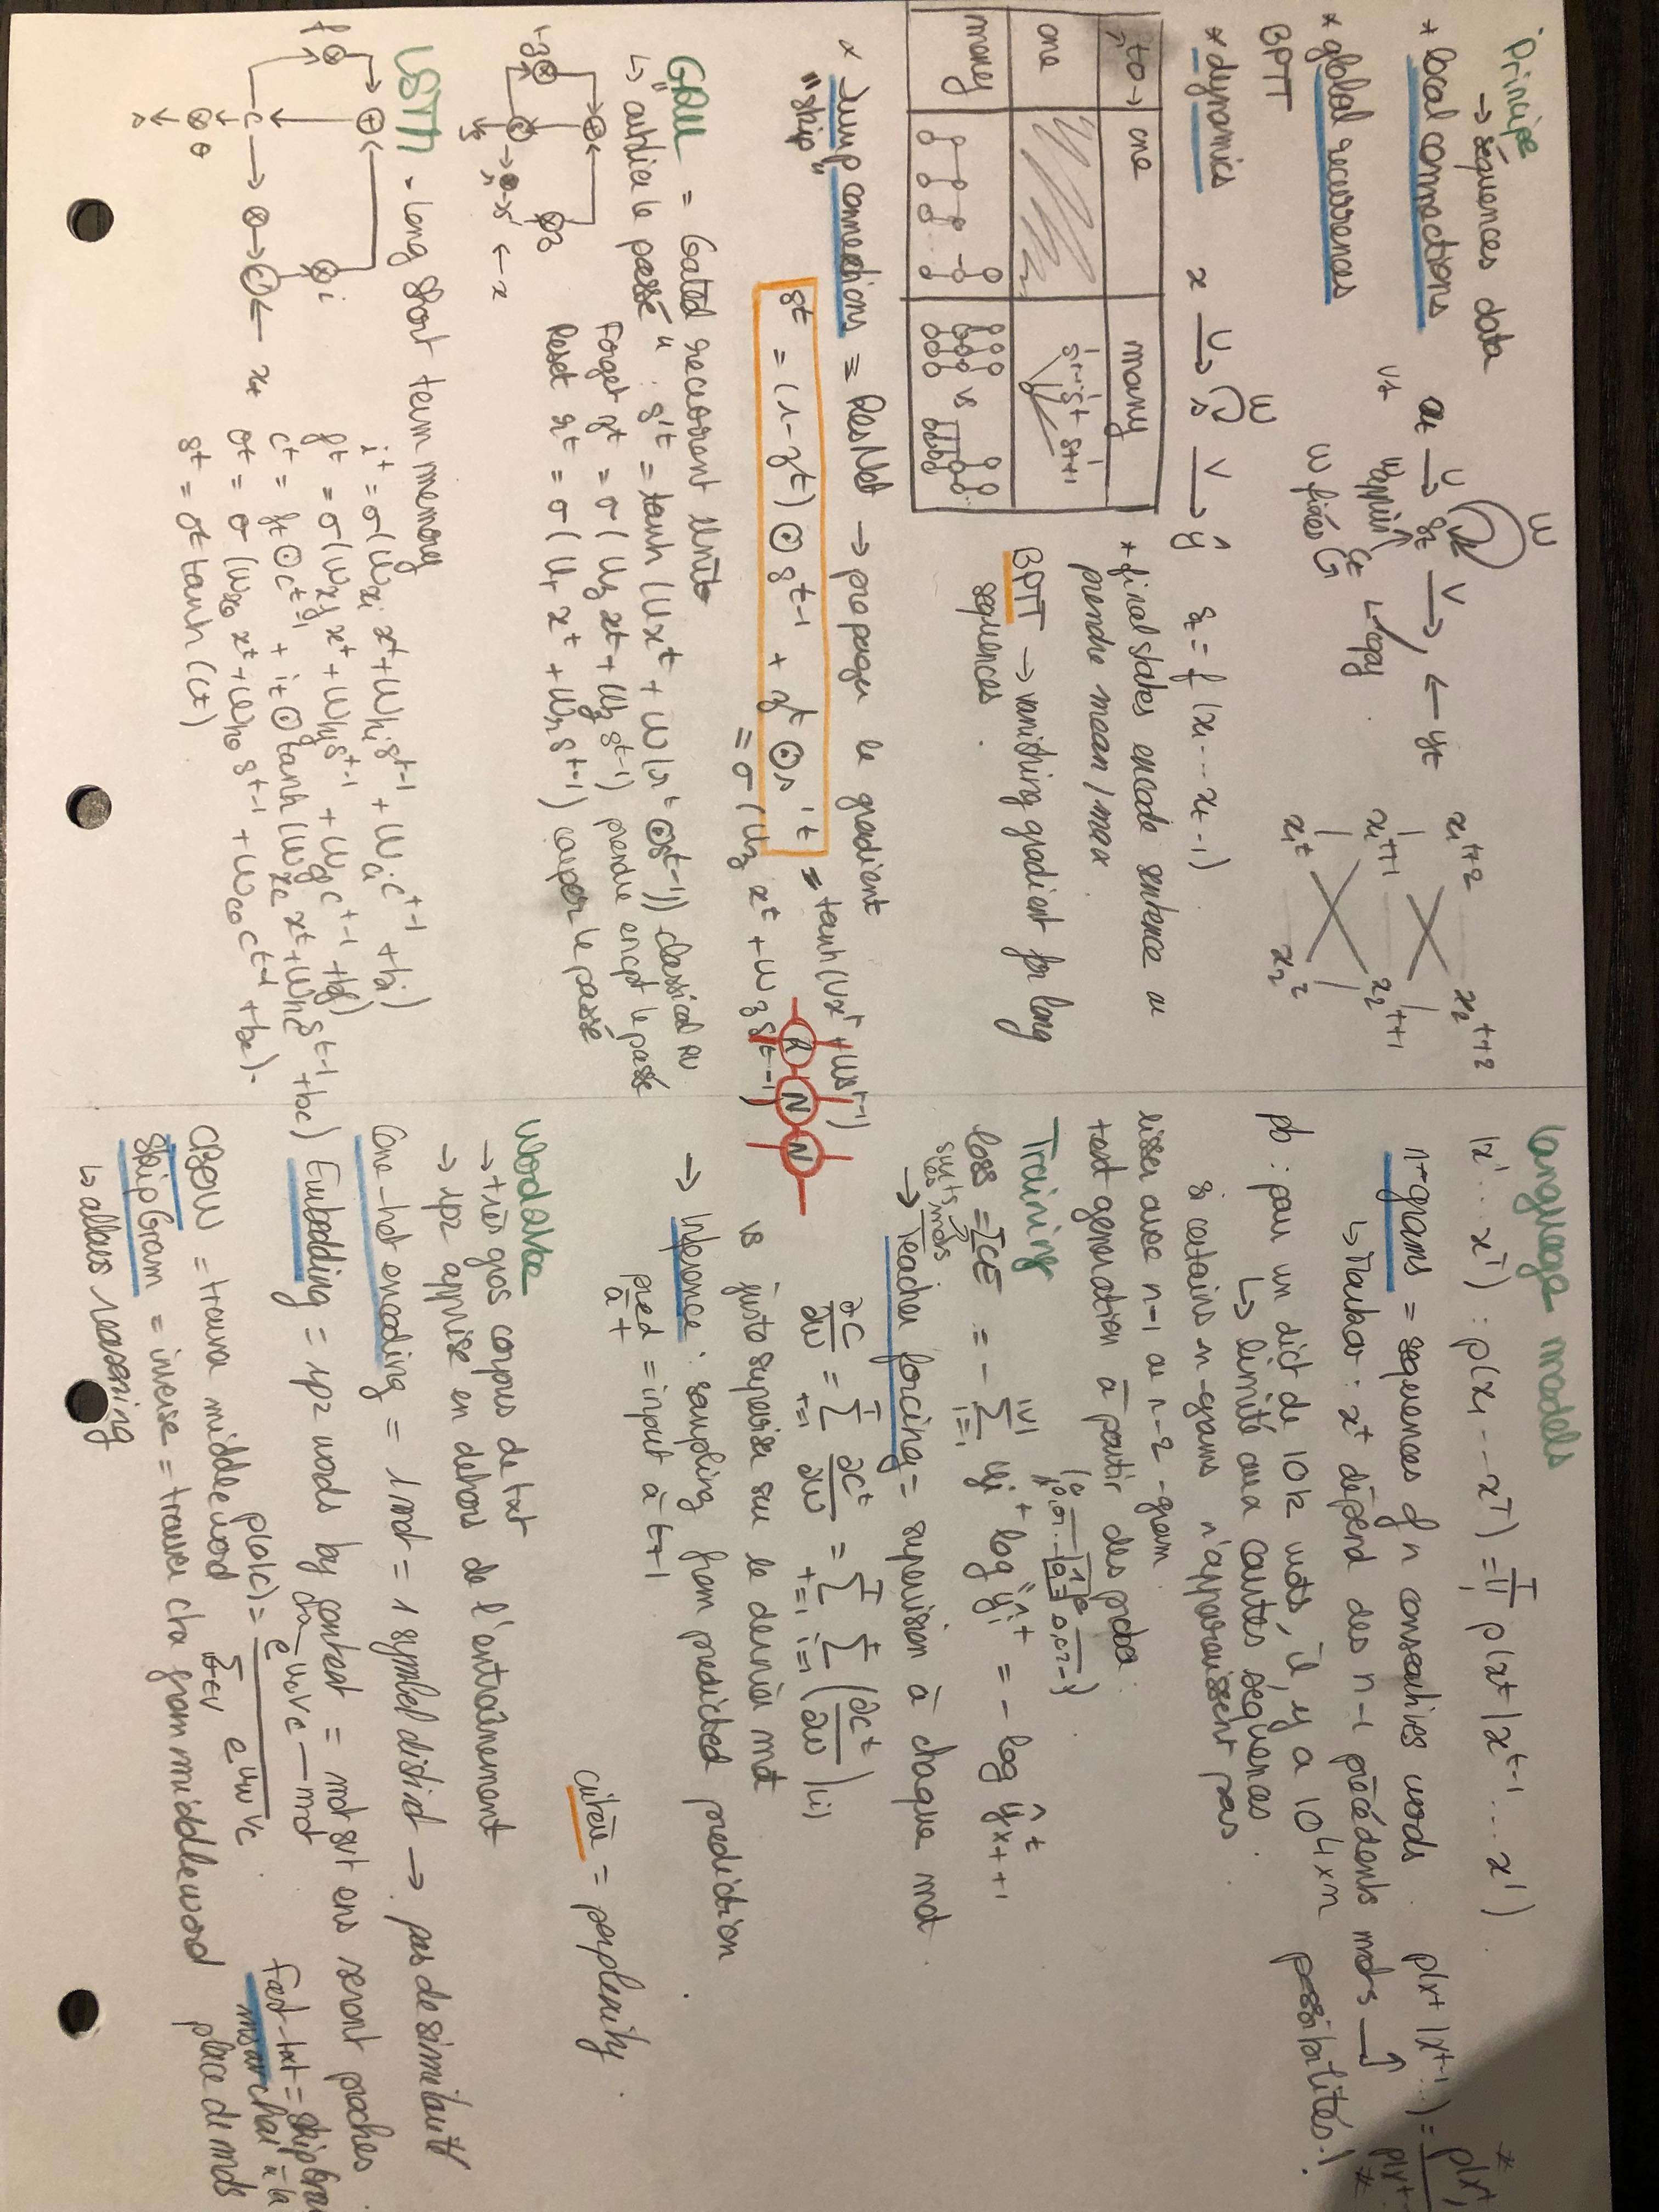 Principe
→ séquences data
* local connections
* global recurrences
BPTT
W
xt U→ st V→ ← yt
W fixés
copy
x1^t+2 x2^t+2
x1^t+1 x2^t+1
x1^t x2^2
* dynamics x U→ s V→ ŷ st = f(x1...xt-1)
W
to → one many
one
many
vs
* final states encode sentence ou
prendre mean/max
BPTT → vanishing gradient for long
sequences.
* Jump connections = ResNet → propager le gradient
"skip"
s^t = (1-z^t) ⊙ s^t-1 + z^t ⊙ s'^t = tanh(Ux^t + Ws^t-1)
= σ(Uz x^t + Wz s^t-1)
RNN
GRU = Gated recurrent Unit
↳ "oublier le passé" : s'^t = tanh(Ux^t + W(r^t ⊙ s^t-1)) classical
Forget z^t = σ(Uz x^t + Wz s^t-1) prendre en cpt le passé
Reset r^t = σ(Ur x^t + Wr s^t-1) couper le passé
LSTM - Long Short term memory
i^t = σ(Wxi x^t + Whi s^t-1 + Wci c^t-1 + bi)
f^t = σ(Wxf x^t + Whf s^t-1 + Wcf c^t-1 + bf)
c^t = ft ⊙ c^t-1 + it ⊙ tanh(Wxc x^t + Whc s^t-1 + bc)
ot = σ(Wxo x^t + Who s^t-1 + Wco c^t-1 + bc).
s^t = ot tanh(ct)
Language models
(x^1...x^T) : p(x1...x^T) = Π p(x^t|x^t-1...x^1)
n-grams = sequences of n consecutives words.
↳ Markov : x^t dépend des n-1 précédents mots →
pb : pour un dict de 10k mots, il y a 10^4xn possibilités !
↳ limité aux courtes séquences.
si certains n-grams n'apparaissent pas
lisser avec n-1 ou n-2 -gram.
text generation à partir des proba :
Training
loss = ICE = - Σ yi^t log ŷi^t = - log ŷ^t x t+1
→ Teacher forcing = supervision à chaque mot.
∂C/∂W = Σ ∂C^t/∂W = Σ Σ (∂C^t/∂W)(i)
vs juste superviser sur le dernier mot
→ Inference : sampling from predicted prediction.
pred à t = input à t+1
critère = perplexity.
Word2Vec
→ très gros corpus de txt
→ rpz apprise en dehors de l'entraînement
One-hot encoding = 1 mot = 1 symbol distinct → pas de similarité
Embedding = rpz words by context = mot svt ens seront proches.
CBOW = trouva middle word p(o|c) = e^uo vc / Σ e^uw vc
skipGram = inverse = trouver ctx from middle word
↳ allows reasoning
Fast-txt = skipGram
place de mots